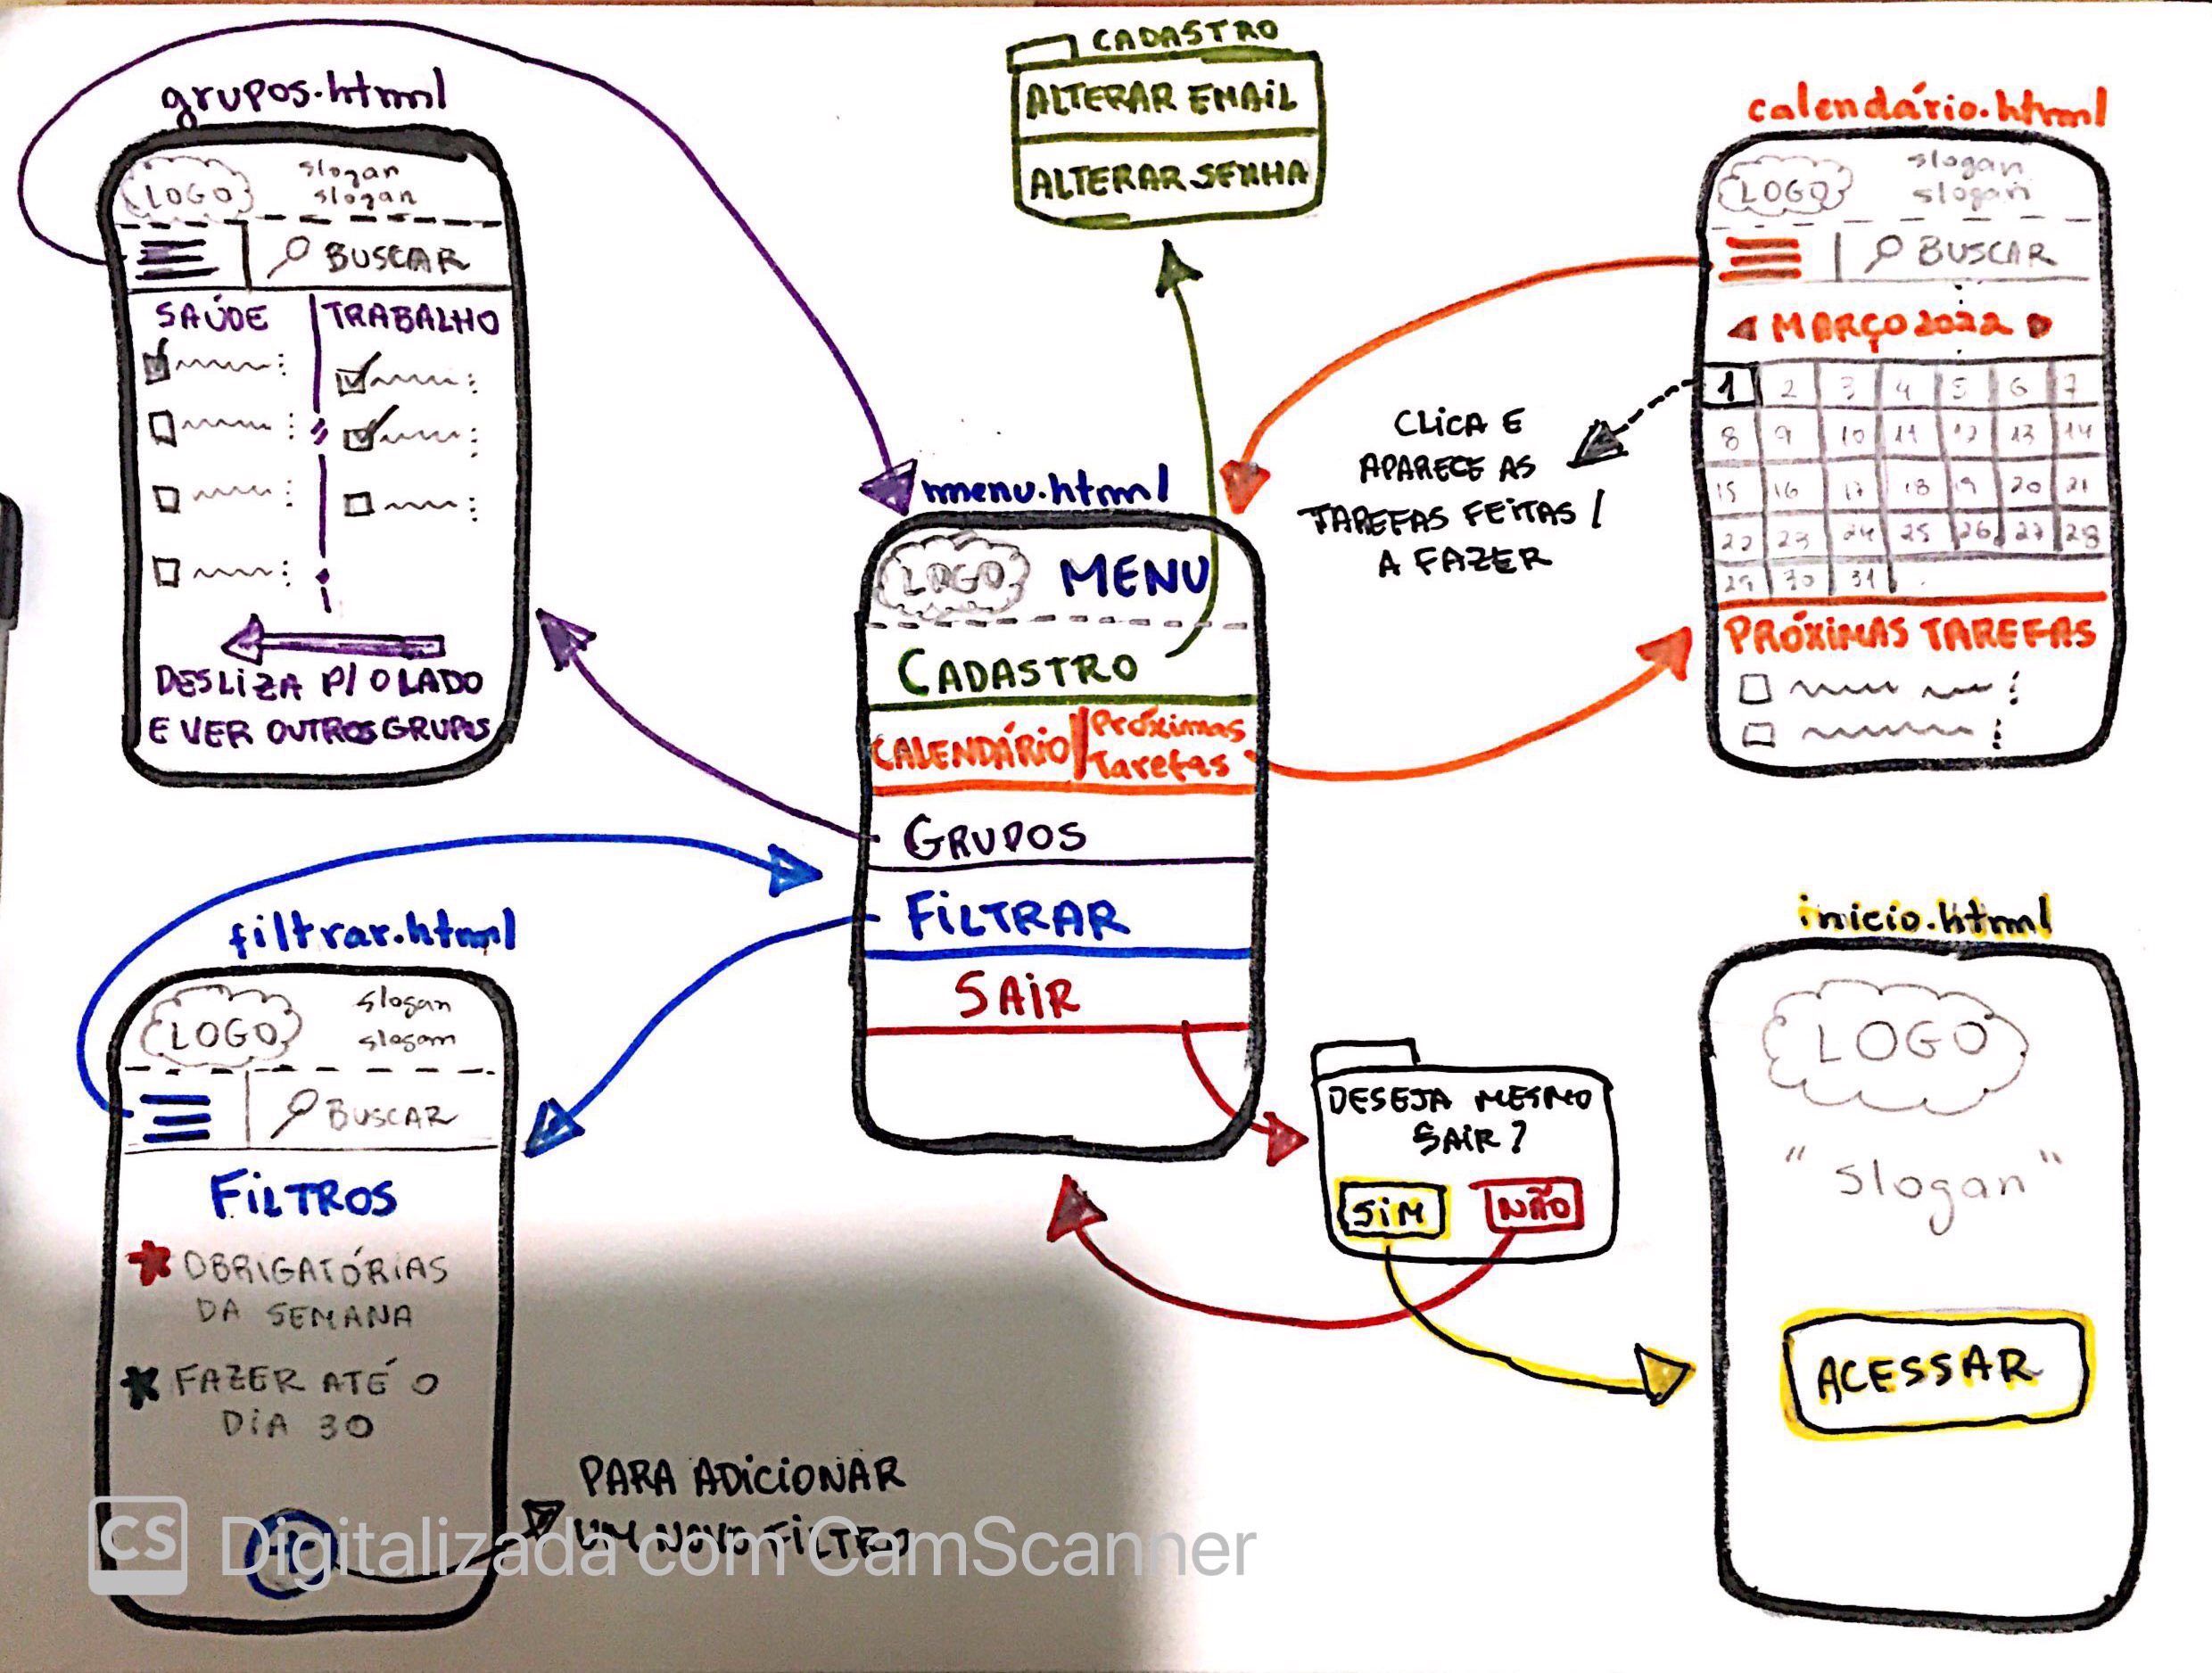 grupos.html
LOGO
slogan
slogan
BUSCAR
SAÚDE
TRABALHO
DESLIZA P/ O LADO
E VER OUTROS GRUPOS
CADASTRO
ALTERAR EMAIL
ALTERAR SENHA
calendário.html
LOGO
slogan
slogan
BUSCAR
MARÇO 2022
1 2 3 4 5 6 7
8 9 10 11 12 13 14
15 16 17 18 19 20 21
22 23 24 25 26 27 28
29 30 31
PRÓXIMAS TAREFAS
CLICA E
APARECE AS
TAREFAS FEITAS /
A FAZER
menu.html
LOGO
MENU
CADASTRO
CALENDÁRIO/Próximas
Tarefas
GRUPOS
FILTRAR
SAIR
filtrar.html
LOGO
slogan
slogam
BUSCAR
FILTROS
OBRIGATÓRIAS
DA SEMANA
FAZER ATÉ O
DIA 30
PARA ADICIONAR
UM NOVO FILTRO
DESEJA MESMO
SAIR?
SIM
NÃO
inicio.html
LOGO
"slogan"
ACESSAR
CS Digitalizada com CamScanner